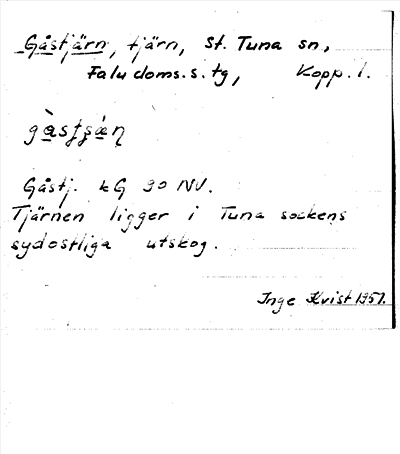 Gåstjärn, tjärn, St. Tuna sn,
Falu doms. s. tg, Kopp. l.
Gåstj. kG 90 NV.
Tjärnen ligger i Tuna sockens
sydostliga utskog.
Inge Kvist 1951.